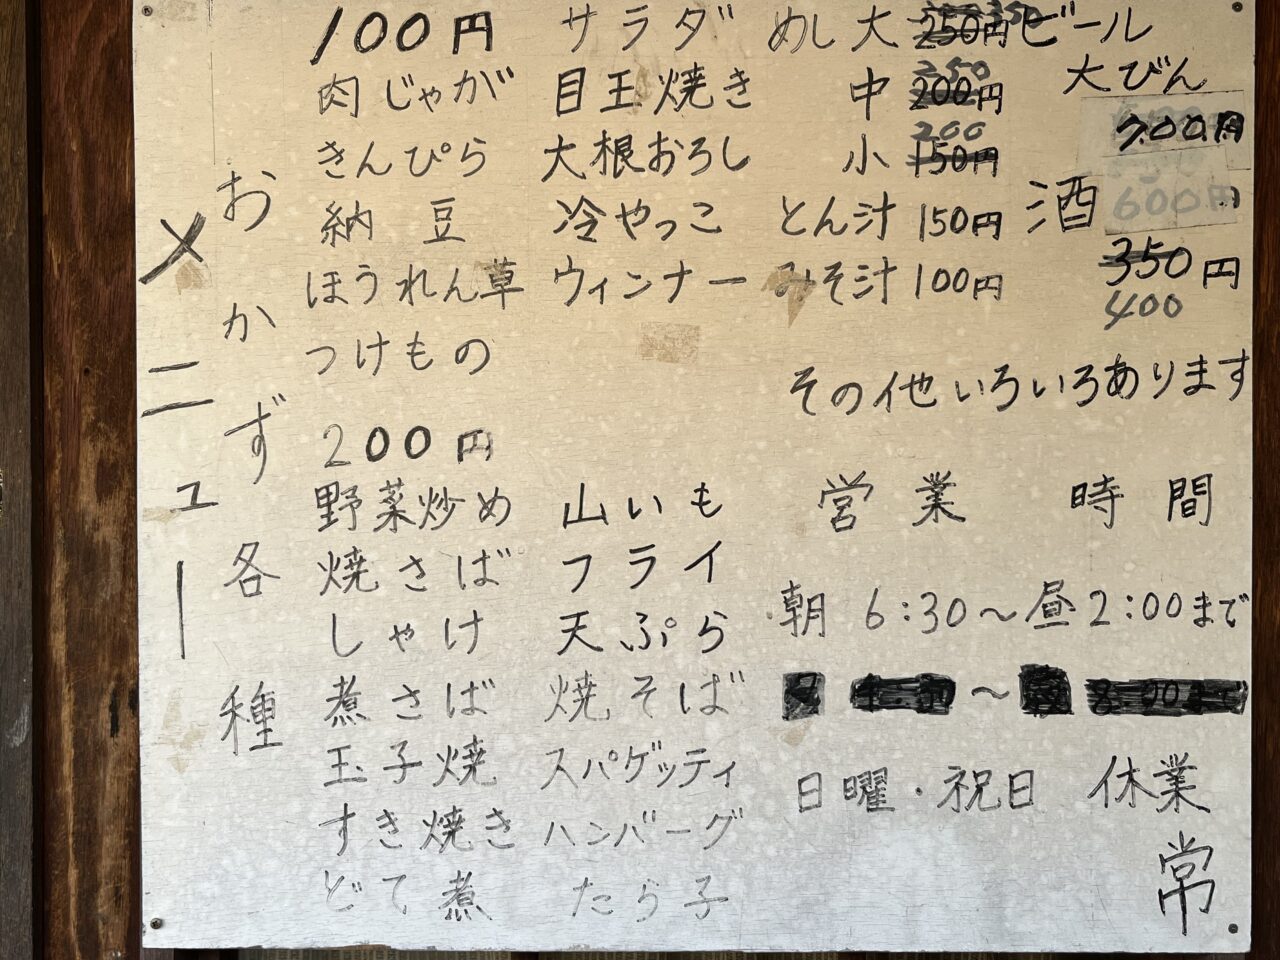 メニュー
おかず各種
100円
肉じゃが
きんぴら
納豆
ほうれん草
つけもの
サラダ
目玉焼き
大根おろし
冷やっこ
ウィンナー
200円
野菜炒め
焼さば
しゃけ
煮さば
玉子焼
すき焼き
どて煮
山いも
フライ
天ぷら
焼そば
スパゲッティ
ハンバーグ
たら子
めし大 250円 350
中 200円 250
小 150円 200
とん汁 150円
みそ汁 100円
ビール
大びん
700円
600円
酒
350円
400
その他いろいろあります
営業時間
朝 6:30~昼2:00まで
~
日曜・祝日 休業
常